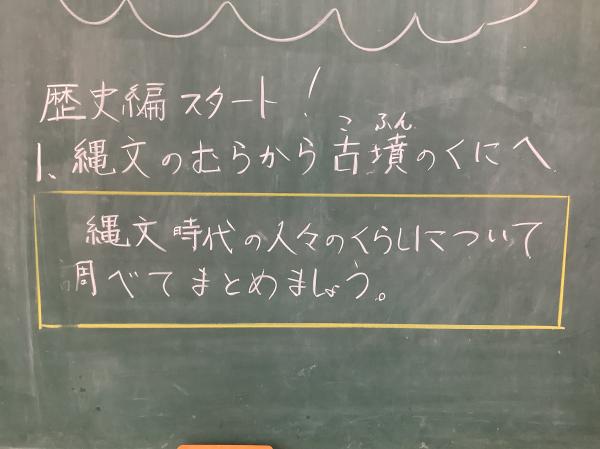 歴史編スタート!
こ ふん
1、縄文のむらから古墳のくにへ
縄文時代の人々のくらしについて
調べてまとめましょう。